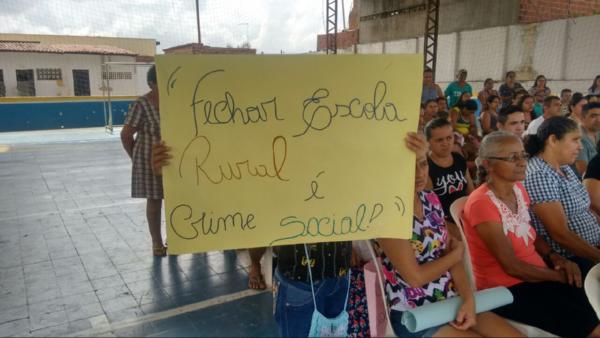 "Fechar Escola
Rural
é
Crime Social!"
you